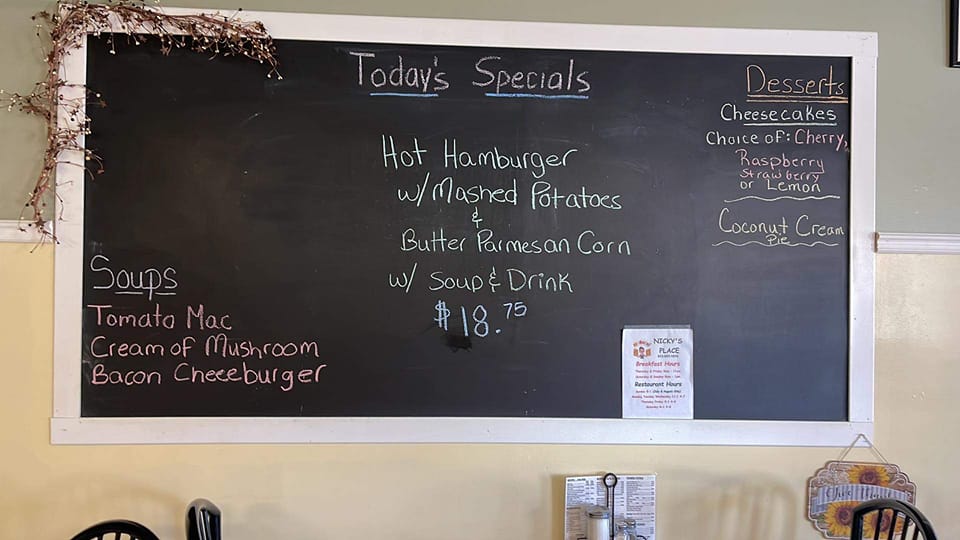 Today's Specials
Hot Hamburger
w/ Mashed Potatoes
&
Butter Parmesan Corn
w/ Soup & Drink
$18.75
Soups
Tomato Mac
Cream of Mushroom
Bacon Cheeeburger
Desserts
Cheesecakes
Choice of: Cherry,
Raspberry
Strawberry
or Lemon
Coconut Cream
Pie
NICKY'S
PLACE
Breakfast Hours
Restaurant Hours